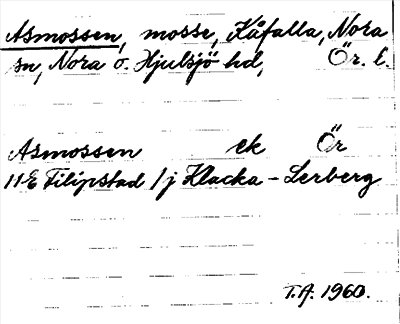 Asmossen, mosse, Kåfalla, Nora
sn, Nora o. Hjulsjö hd, Ör. l.
Asmossen ek Ör
11E Filipstad /j Klacka-Lerberg
T.A. 1960.